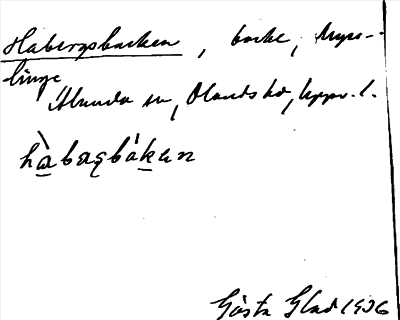 Habergsbacken, backe, Myre-
linge
Alunda sn, Olands hd, Uppr. l.
hàbaqbákan
Gösta Glad 1936